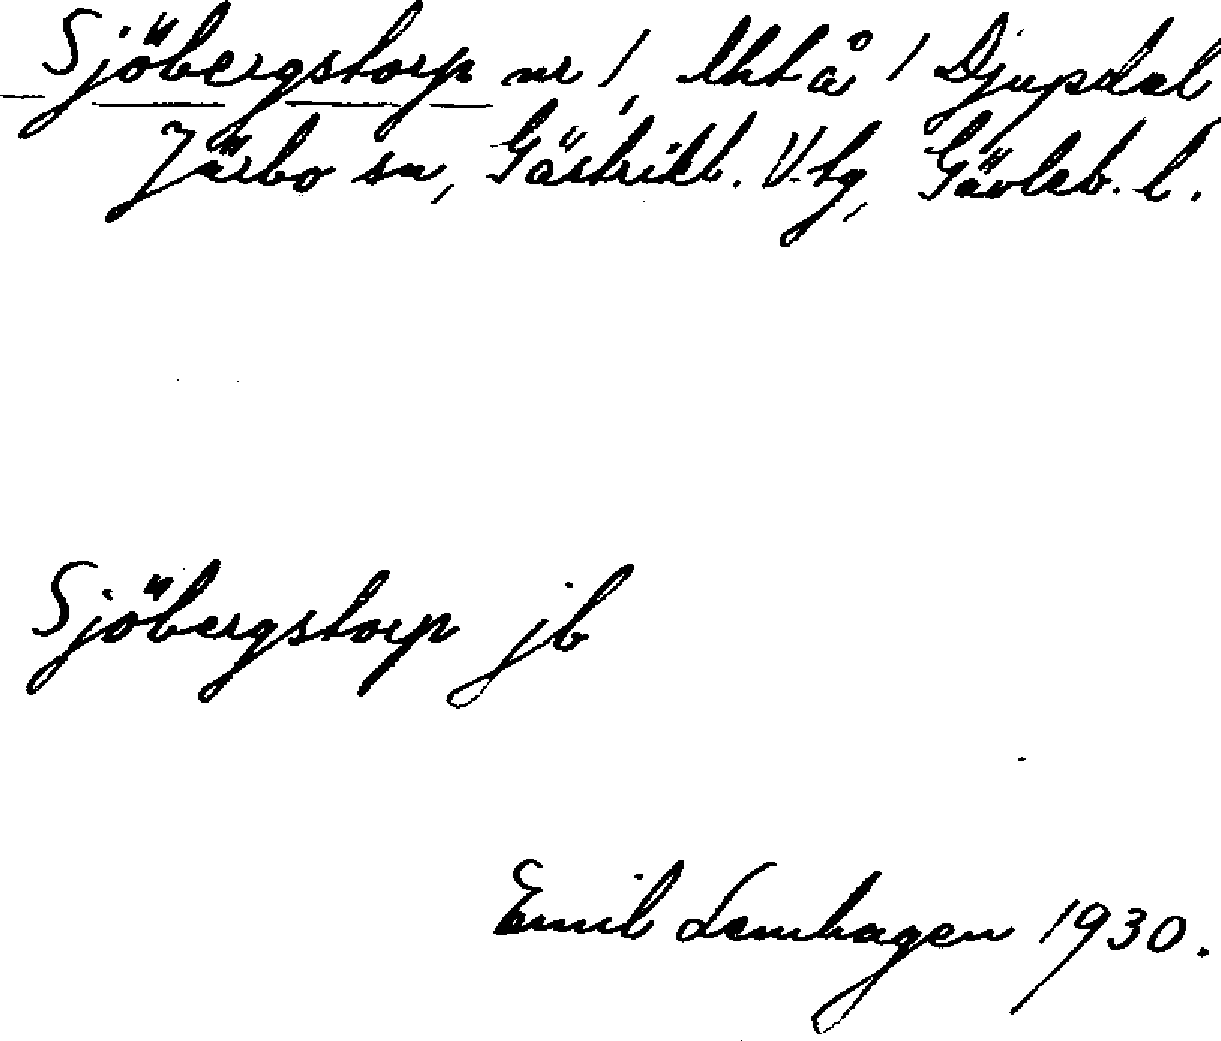 Sjöbergstorp nr 1, Uht å 1 Djupdal
Järbo sn, Gästrikl. V. tg, Gävleb. l.
Sjöbergstorp jb
Emil Lemhagen 1930.